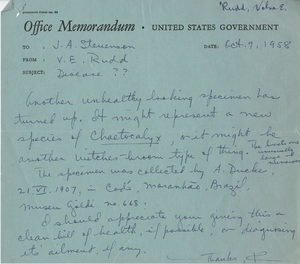 "Rudd, Velva E.
Office Memorandum • UNITED STATES GOVERNMENT
TO : J. A. Stevenson
DATE: Oct. 9, 1958
FROM : V. E. Rudd
SUBJECT: Disease ??
Another unhealthy looking specimen has
turned up. It might represent a new
species of Chaetocalyx, or it might be
another witches-broom type of thing. The bracts are
unusually
large &
The specimen was collected by A. Ducke
21 VI 1907, in Codó, Maranhão, Brazil.
Museu Goeldi no. 668.
I should appreciate your giving this a
clean bill of health, if possible, or diagnosing
its ailment, if any.
Thanks, R